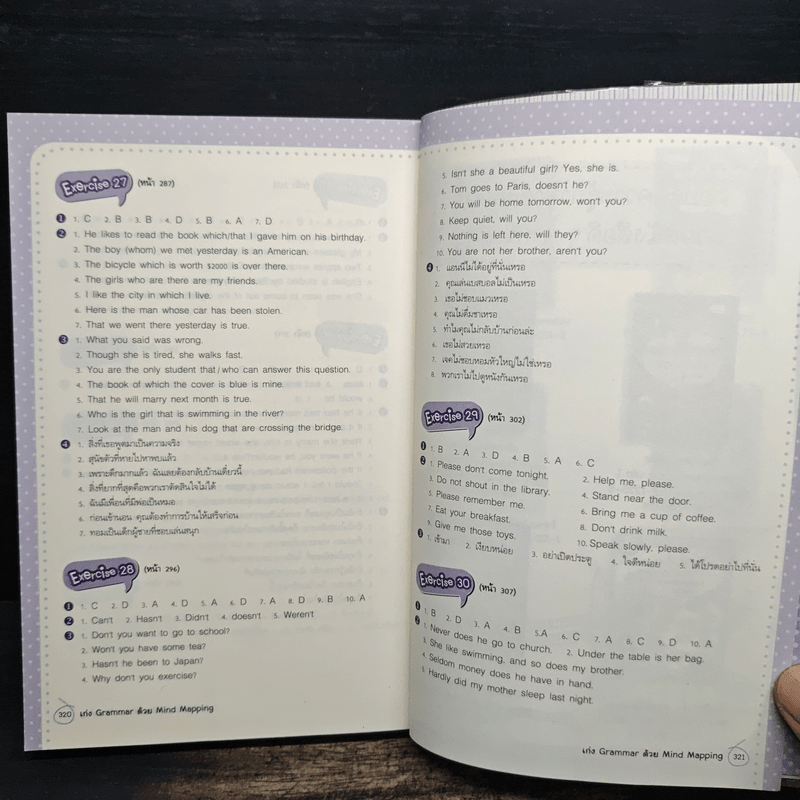 Exercise 27 (หน้า 287)
1 1. C 2. B 3. B 4. D 5. B 6. A 7. D
2 1. He likes to read the book which/that I gave him on his birthday.
2. The boy (whom) we met yesterday is an American.
3. The bicycle which is worth $2000 is over there.
4. The girls who are there are my friends.
5. I like the city in which I live.
6. Here is the man whose car has been stolen.
7. That we went there yesterday is true.
3 1. What you said was wrong.
2. Though she is tired, she walks fast.
3. You are the only student that/who can answer this question.
4. The book of which the cover is blue is mine.
5. That he will marry next month is true.
6. Who is the girl that is swimming in the river?
7. Look at the man and his dog that are crossing the bridge.
4 1. สิ่งที่เธอพูดมาเป็นความจริง
2. สุนัขตัวที่หายไปหาพบแล้ว
3. เพราะดึกมากแล้ว ฉันเลยต้องกลับบ้านเดี๋ยวนี้
4. สิ่งที่ยากที่สุดคือพวกเราตัดสินใจไม่ได้
5. ฉันมีเพื่อนที่มีพ่อเป็นหมอ
6. ก่อนเข้านอน คุณต้องทำการบ้านให้เสร็จก่อน
7. ทอมเป็นเด็กผู้ชายที่ชอบเล่นสนุก
Exercise 28 (หน้า 296)
1 1. C 2. D 3. A 4. D 5. A 6. D 7. A 8. D 9. B 10. A
2 1. Can't 2. Hasn't 3. Didn't 4. doesn't 5. Weren't
3 1. Don't you want to go to school?
2. Won't you have some tea?
3. Hasn't he been to Japan?
4. Why don't you exercise?
320 เก่ง Grammar ด้วย Mind Mapping
5. Isn't she a beautiful girl? Yes, she is.
6. Tom goes to Paris, doesn't he?
7. You will be home tomorrow, won't you?
8. Keep quiet, will you?
9. Nothing is left here, will they?
10. You are not her brother, aren't you?
4 1. แอนนี่ไม่ได้อยู่ที่นั่นเหรอ
2. คุณเล่นเบสบอลไม่เป็นเหรอ
3. เธอไม่ชอบแมวเหรอ
4. คุณไม่ดื่มชาเหรอ
5. ทำไมคุณไม่กลับบ้านก่อนล่ะ
6. เธอไม่สวยเหรอ
7. เจคไม่ชอบหอมหัวใหญ่ไม่ใช่เหรอ
8. พวกเราไม่ไปดูหนังกันเหรอ
Exercise 29 (หน้า 302)
1 1. B 2. A 3. D 4. B 5. A 6. C
2 1. Please don't come tonight. 2. Help me, please.
3. Do not shout in the library. 4. Stand near the door.
5. Please remember me. 6. Bring me a cup of coffee.
7. Eat your breakfast. 8. Don't drink milk.
9. Give me those toys. 10. Speak slowly, please.
3 1. เข้ามา 2. เงียบหน่อย 3. อย่าเปิดประตู 4. ใจดีหน่อย 5. ได้โปรดอย่าไปที่นั่น
Exercise 30 (หน้า 307)
1 1. B 2. D 3. A 4. B 5.A 6. C 7. A 8. C 9. D 10. A
2 1. Never does he go to church. 2. Under the table is her bag.
3. She like swimming, and so does my brother.
4. Seldom money does he have in hand.
5. Hardly did my mother sleep last night.
เก่ง Grammar ด้วย Mind Mapping 321